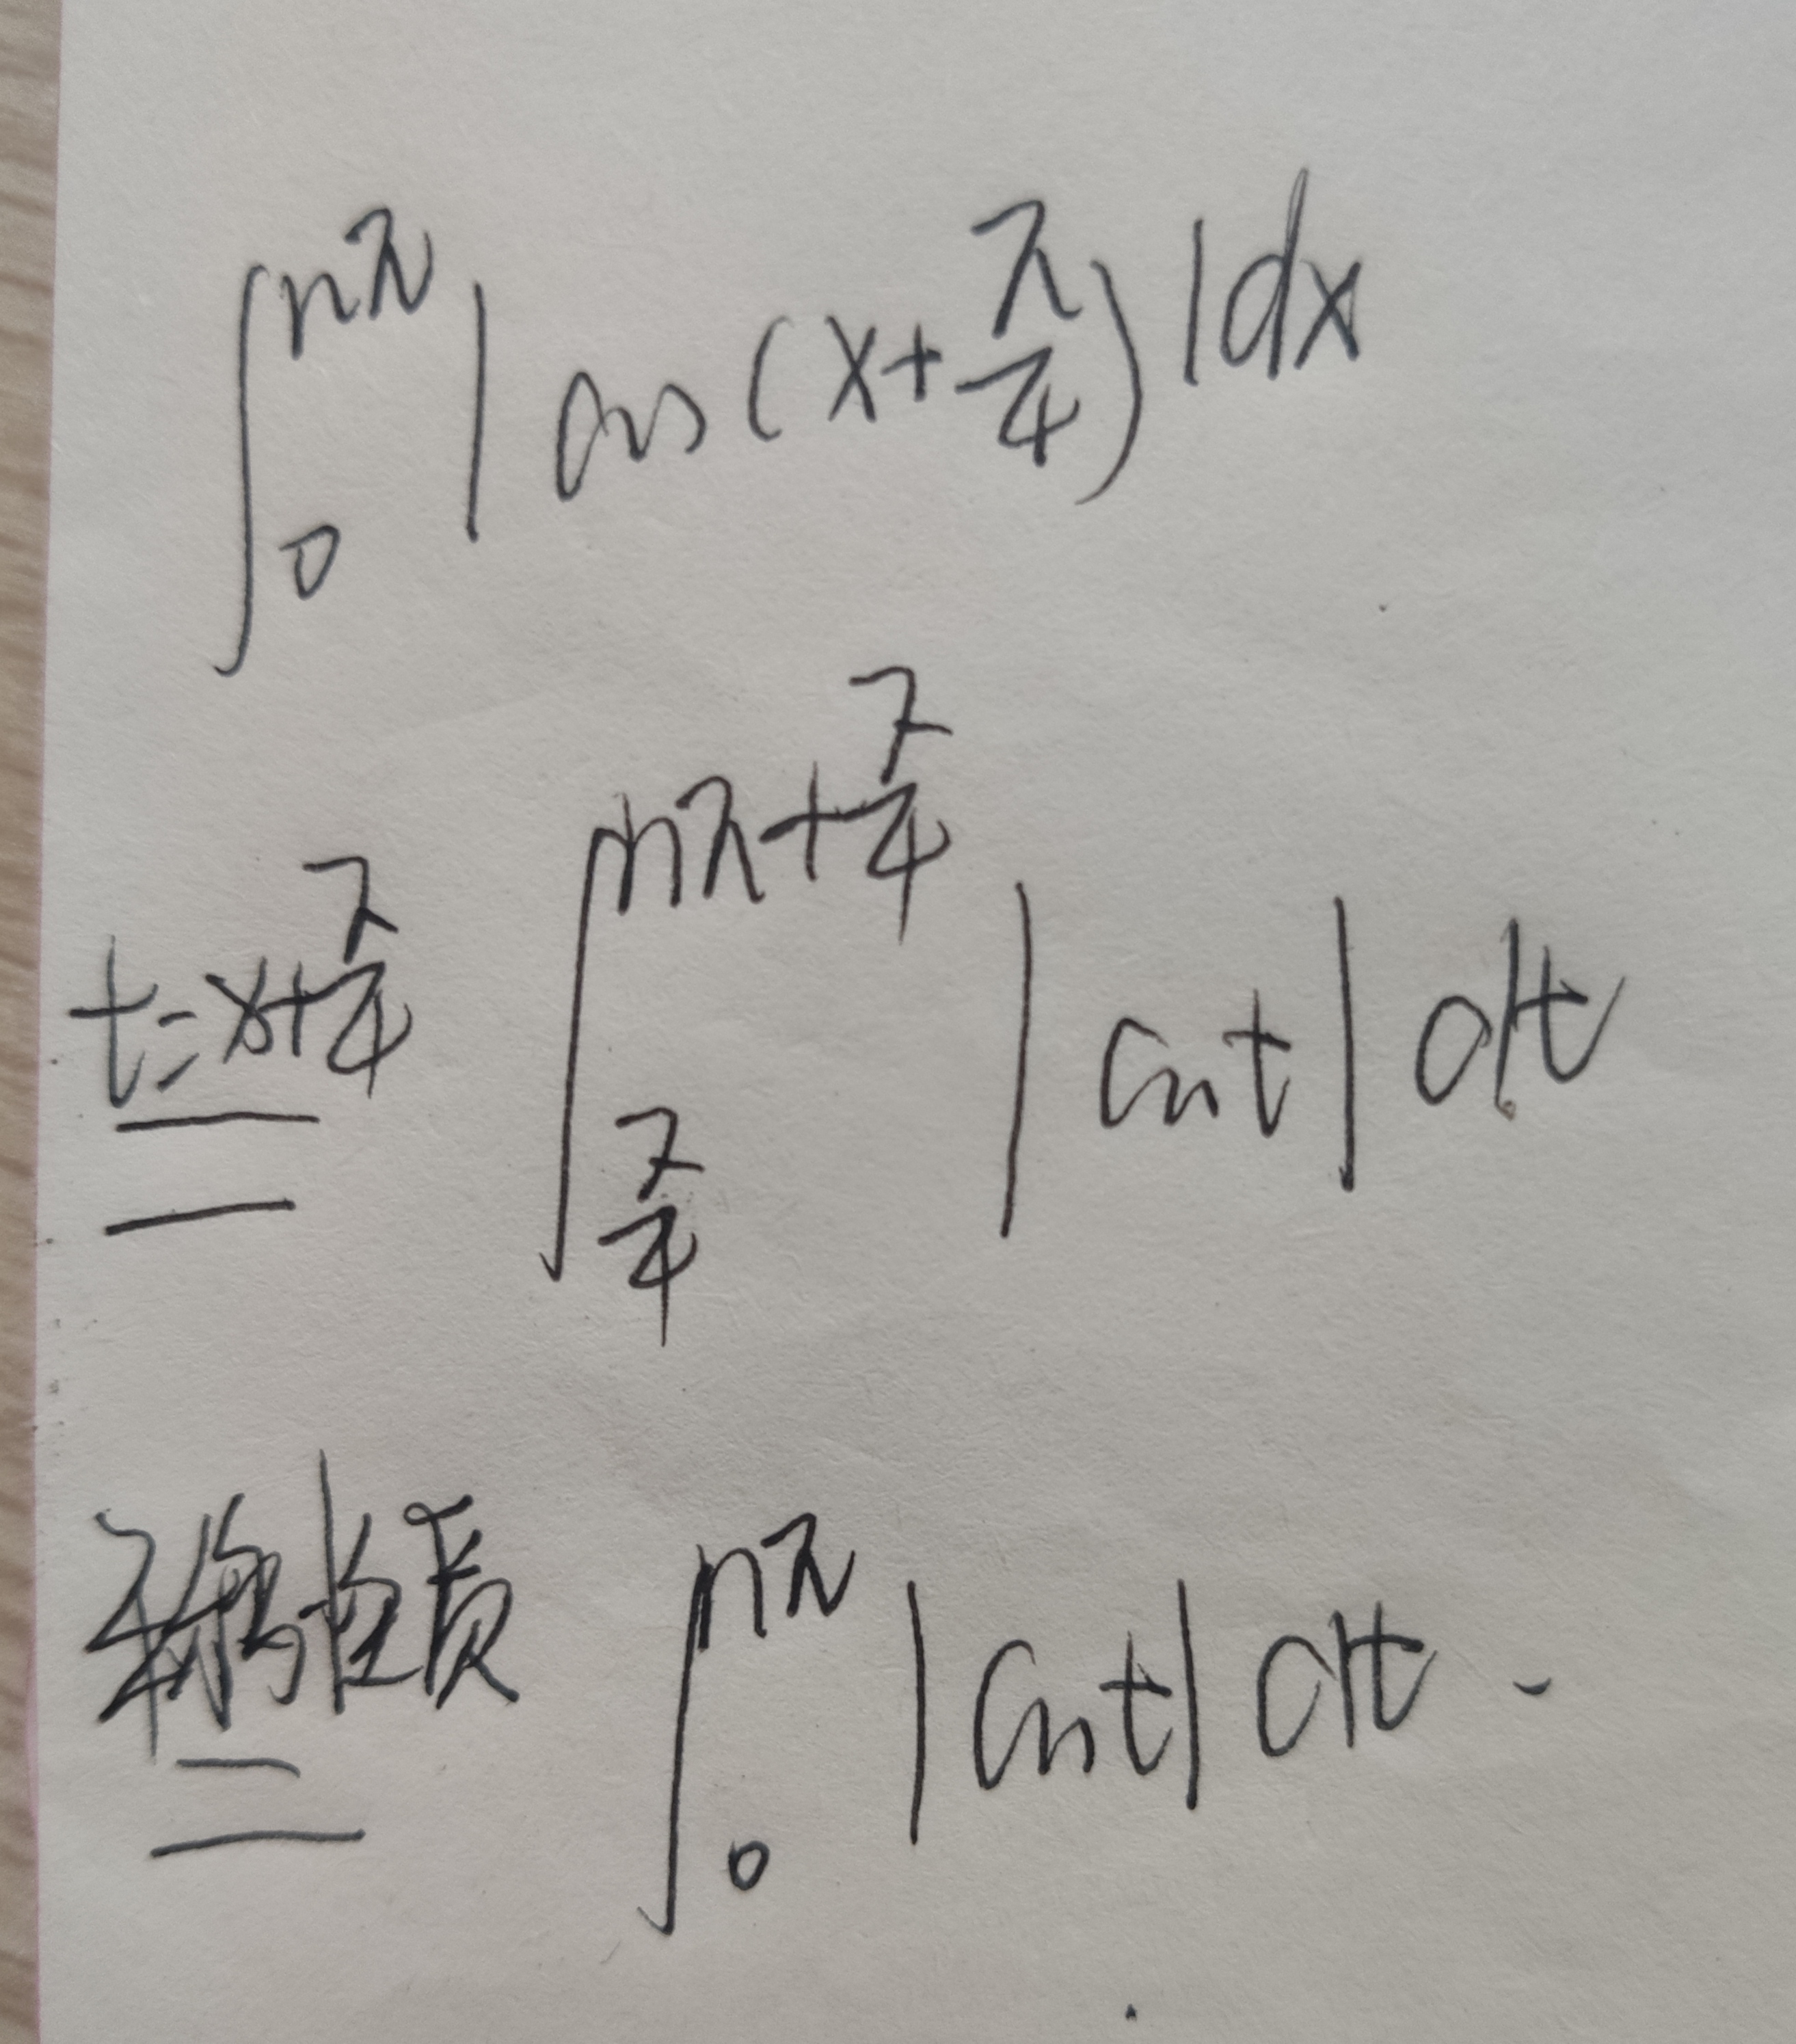 ∫_0^{nπ} |cos(x+π/4)|dx
t=x+π/4 = ∫_{π/4}^{nπ+π/4} |cos t| dt
平移性质 = ∫_0^{nπ} |cos t| dt.